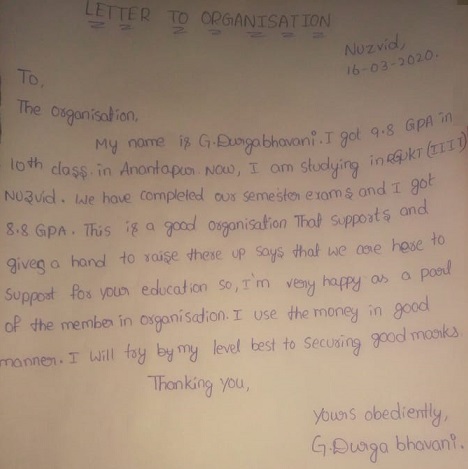 LETTER TO ORGANISATION
Nuzvid,
16-03-2020.
To,
The organisation,
My name is G.Durgabhavani. I got 9.8 GPA in
10th class. in Anantapur. Now, I am studying in RGUKT (IIIT)
Nuzvid. We have completed our semester exams and I got
8.8 GPA. This is a good organisation That supports and
gives a hand to raise there up says that we are here to
Support for your education so, I'm very happy as a part
of the member in organisation. I use the money in good
manner. I will try by my level best to securing good marks.
Thanking you,
yours obediently,
G.Durga bhavani.